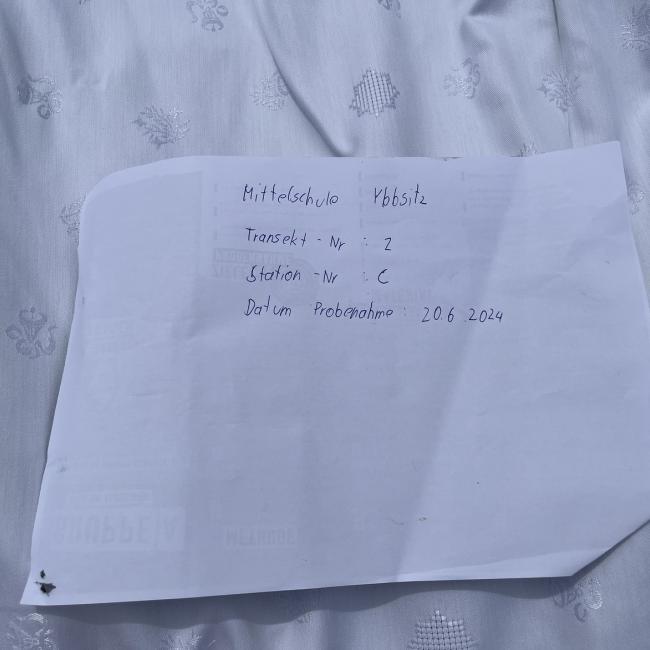 Mittelschule Ybbsitz
Transekt - Nr : 2
Station - Nr : C
Datum Probenahme : 20.6.2024
GRUPPE A
METHODE